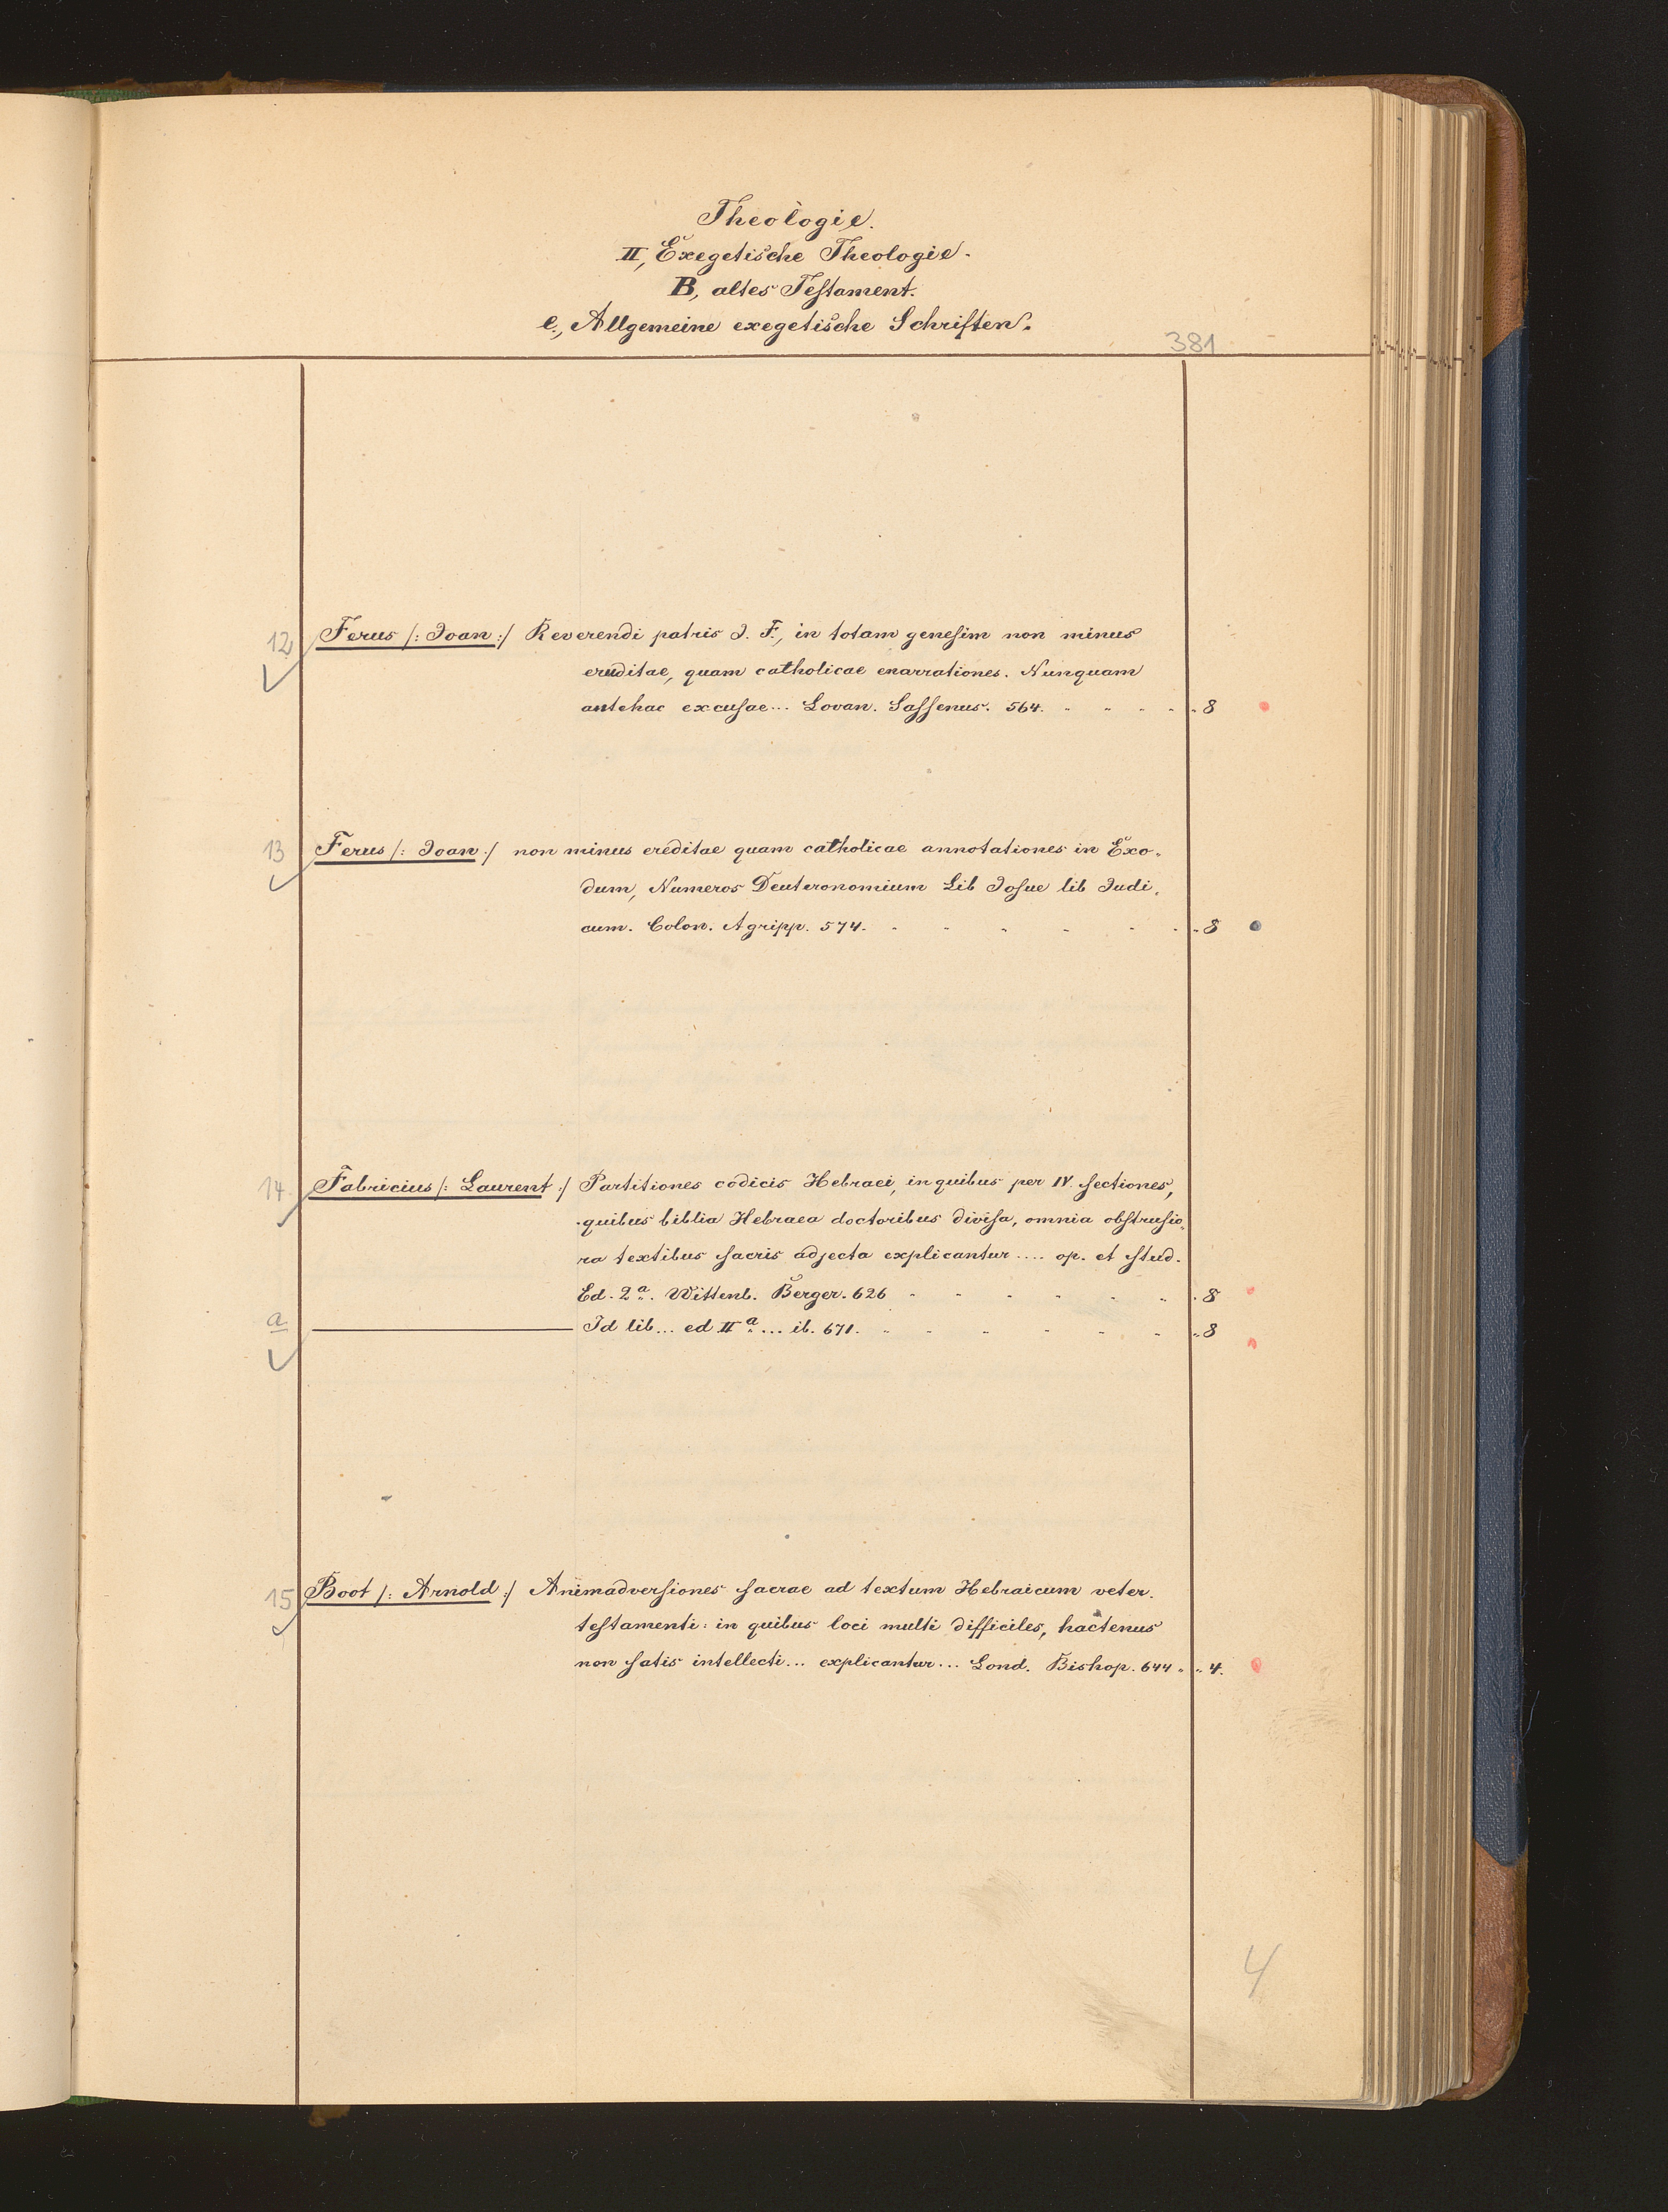 Theologie.
II, Exegetische Theologie.
B, altes Testament.
e., Allgemeine exegetische Schriften.
381
12 Ferus /: Joan :/ Reverendi patris J. F., in totam genesim non minus
eruditae, quam catholicae enarrationes. Nunquam
antehac excusae... Lovan. Sassenus. 564. " " " " " 8
13 Ferus /: Joan :/ non minus ereditae quam catholicae annotationes in Exo-
dum, Numeros Deuteronomium Lib Josue lib Judi-
cum. Colon. Agripp. 574. " " " " " " " 8
14 Fabricius /: Laurent :/ Partitiones codicis Hebraei, in quibus per IV. sectiones,
quibus biblia Hebraea doctoribus divisa, omnia obstrusio-
ra textibus sacris adjecta explicantur .... op. et stud.
Ed. 2a. Wittenb. Berger. 626 " " " " " " 8
a ——— Id lib... ed IIa... ib. 671. " " " " " " " 8
15 Boot /: Arnold :/ Animadversiones sacrae ad textum Hebraicum veter.
testamenti: in quibus loci multi difficiles, hactenus
non satis intellecti... explicantur... Lond. Bishop. 644 " " 4.
4